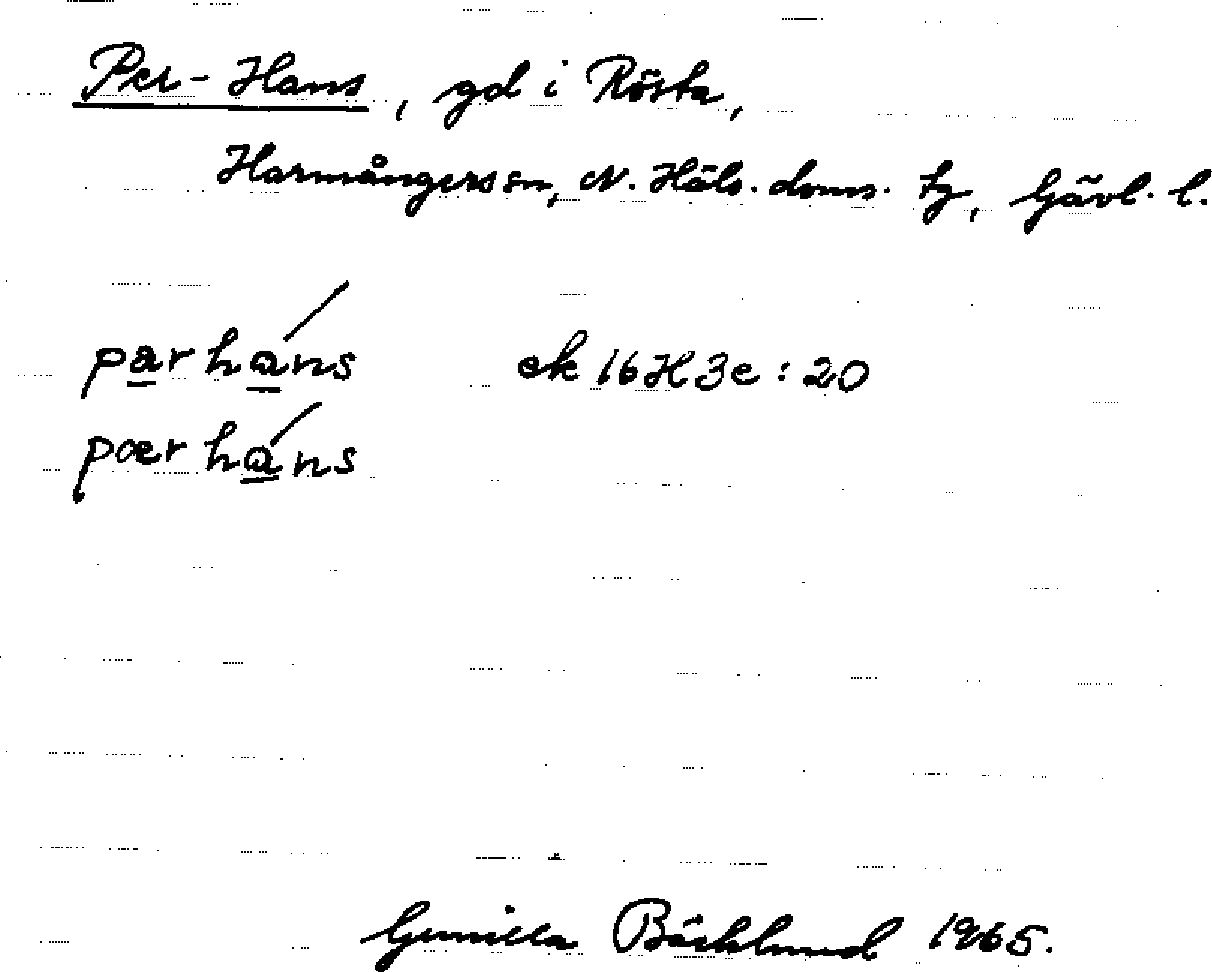 Per-Hans, gd i Rösta,
Harmångers sn, N. Häls. doms. tg, Gävl. l.
parháns ek 16H3e:20
pærháns
Gunilla Bäcklund 1965.